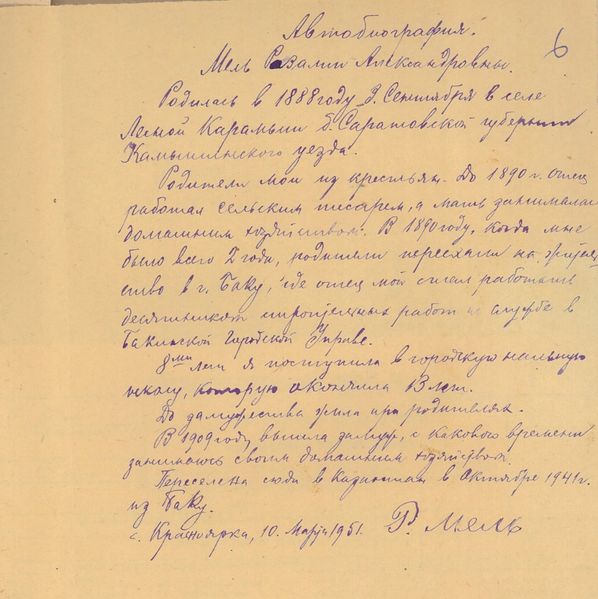 Автобиография.
6
Мель Розалии Александровны.
Родилась в 1888 году 9. Сентября в селе
Лесной Карамыш б. Саратовской губернии
Камышинского уезда.
Родители мои из крестьян. До 1890 г. отец
работал сельским писарем, а мать занималась
домашним хозяйством. В 1890 году, когда мне
было всего 2 года, родители переехали на жительство
в г. Баку, где отец мой стал работать
десятником строительных работ на службе в
Бакинской Городской Управе.
8ми лет я поступила в городскую начальную
школу, которую окончила 13 лет.
До замужества жила при родителях.
В 1909 году вышла замуж, с какового времени
занимаюсь своим домашним хозяйством.
Переселена сюда в Казахстан в Октябре 1941 г.
из Баку.
с. Красноярка, 10. Марта 1951. Р. Мель